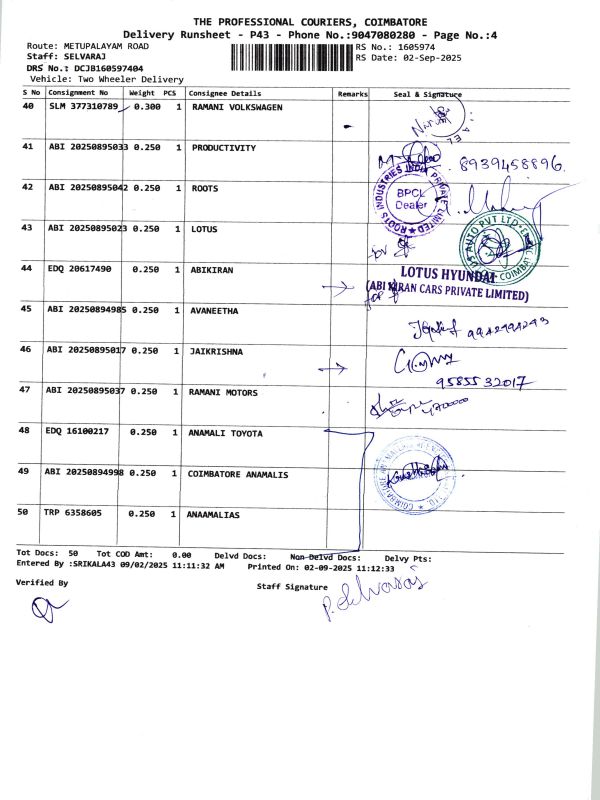 THE PROFESSIONAL COURIERS, COIMBATORE
Delivery Runsheet - P43 - Phone No.:9047080280 - Page No.:4
Route: METUPALAYAM ROAD RS No.: 1605974
Staff: SELVARAJ RS Date: 02-Sep-2025
DRS No.: DCJB160597404
Vehicle: Two Wheeler Delivery
S No Consignment No Weight PCS Consignee Details Remarks Seal & Signature
40 SLM 377310789 0.300 1 RAMANI VOLKSWAGEN
41 ABI 20250895033 0.250 1 PRODUCTIVITY
8939458896.
42 ABI 20250895042 0.250 1 ROOTS
ROOTS INDUSTRIES INDIA PRIVATE LIMITED
BPCL
Dealer
43 ABI 20250895023 0.250 1 LOTUS
44 EDQ 20617490 0.250 1 ABIKIRAN
LOTUS HYUNDAI
(ABI KIRAN CARS PRIVATE LIMITED)
45 ABI 20250894985 0.250 1 AVANEETHA
46 ABI 20250895017 0.250 1 JAIKRISHNA
9585532017
47 ABI 20250895037 0.250 1 RAMANI MOTORS
48 EDQ 16100217 0.250 1 ANAMALI TOYOTA
49 ABI 20250894998 0.250 1 COIMBATORE ANAMALIS
50 TRP 6358605 0.250 1 ANAAMALIAS
Tot Docs: 50 Tot COD Amt: 0.00 Delvd Docs: Non Delvd Docs: Delvy Pts:
Entered By :SRIKALA43 09/02/2025 11:11:32 AM Printed On: 02-09-2025 11:12:33
Verified By Staff Signature
P. Selvaraj